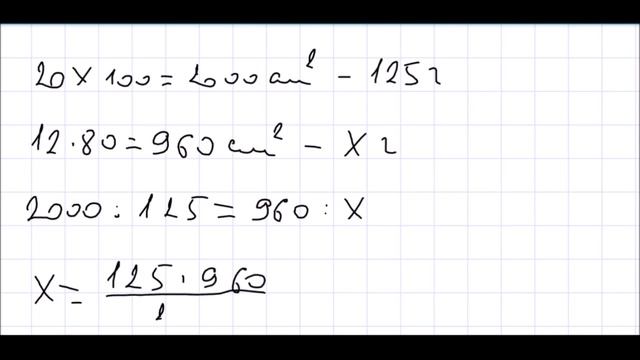 20 × 100 = 2000 см² - 125 г
12 · 80 = 960 см² - x г
2000 : 125 = 960 : x
x = 125 · 960